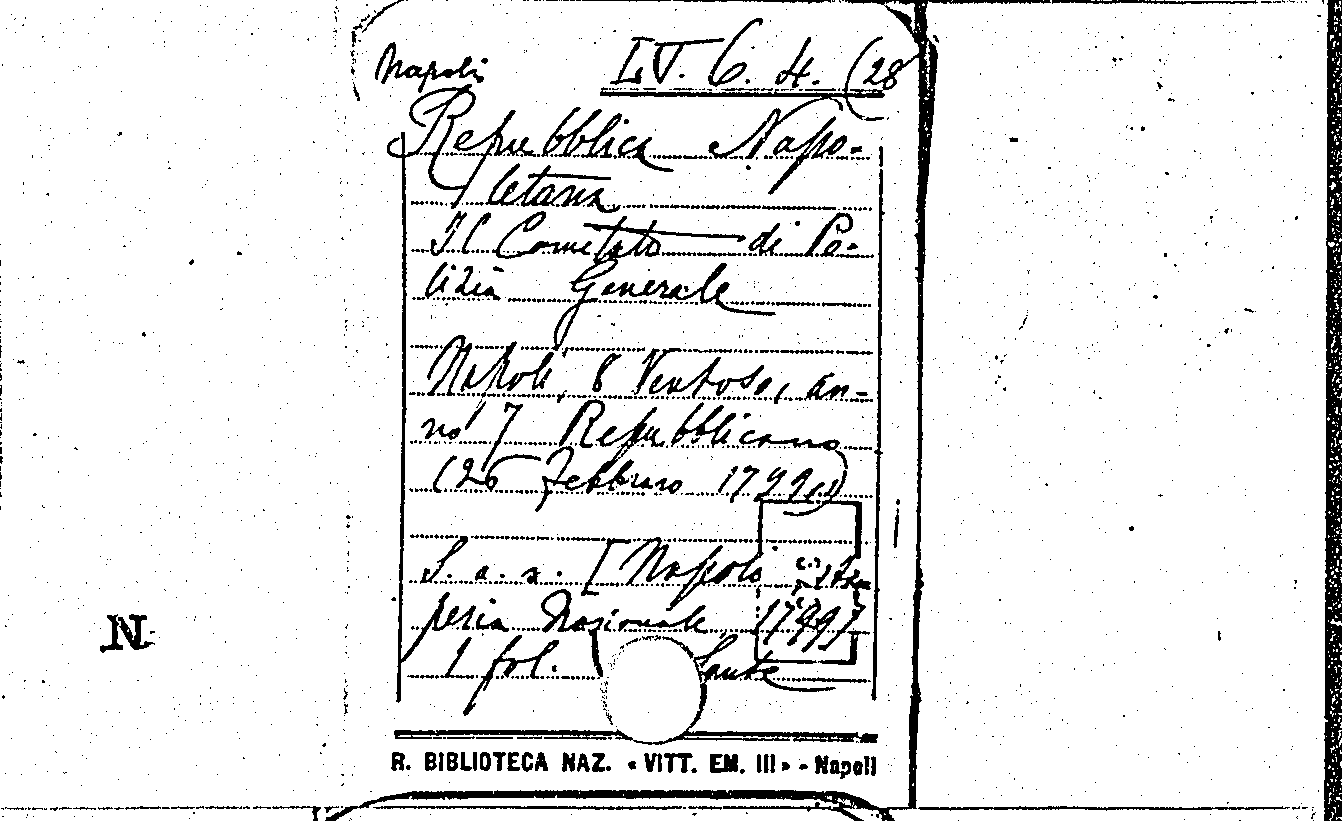 Napoli LV. 6. 4. (28
Repubblica Napo-
letana
Il Comitato di Po-
lizia Generale
Napoli, 8 Ventoso, an-
no 7 Repubblicano
(26 Febbraro 1799.)
S. a. s. [Napoli Stam
peria Nazionale, 1799]
1 fol. volante
N
R. BIBLIOTECA NAZ. « VITT. EM. III » - Napoli